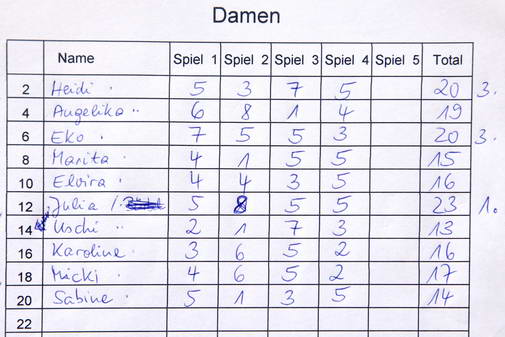 Damen
Name Spiel 1 Spiel 2 Spiel 3 Spiel 4 Spiel 5 Total
2 Heidi 5 3 7 5 20 3.
4 Angelika 6 8 1 4 19
6 Eko 7 5 5 3 20 3.
8 Marita 4 1 5 5 15
10 Elvira 4 4 3 5 16
12 Julia 5 8 5 5 23 1.
14 Uschi 2 1 7 3 13
16 Karoline 3 6 5 2 16
18 Micki 4 6 5 2 17
20 Sabine 5 1 3 5 14
22